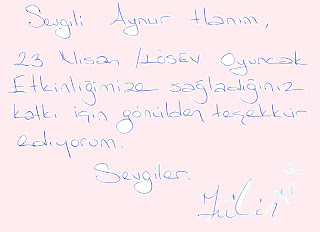 Sevgili Aynur Hanım,
23 Nisan / LÖSEV Oyuncak
Etkinliğimize sağladığınız
katkı için gönülden teşekkür
ediyorum.
Sevgiler.